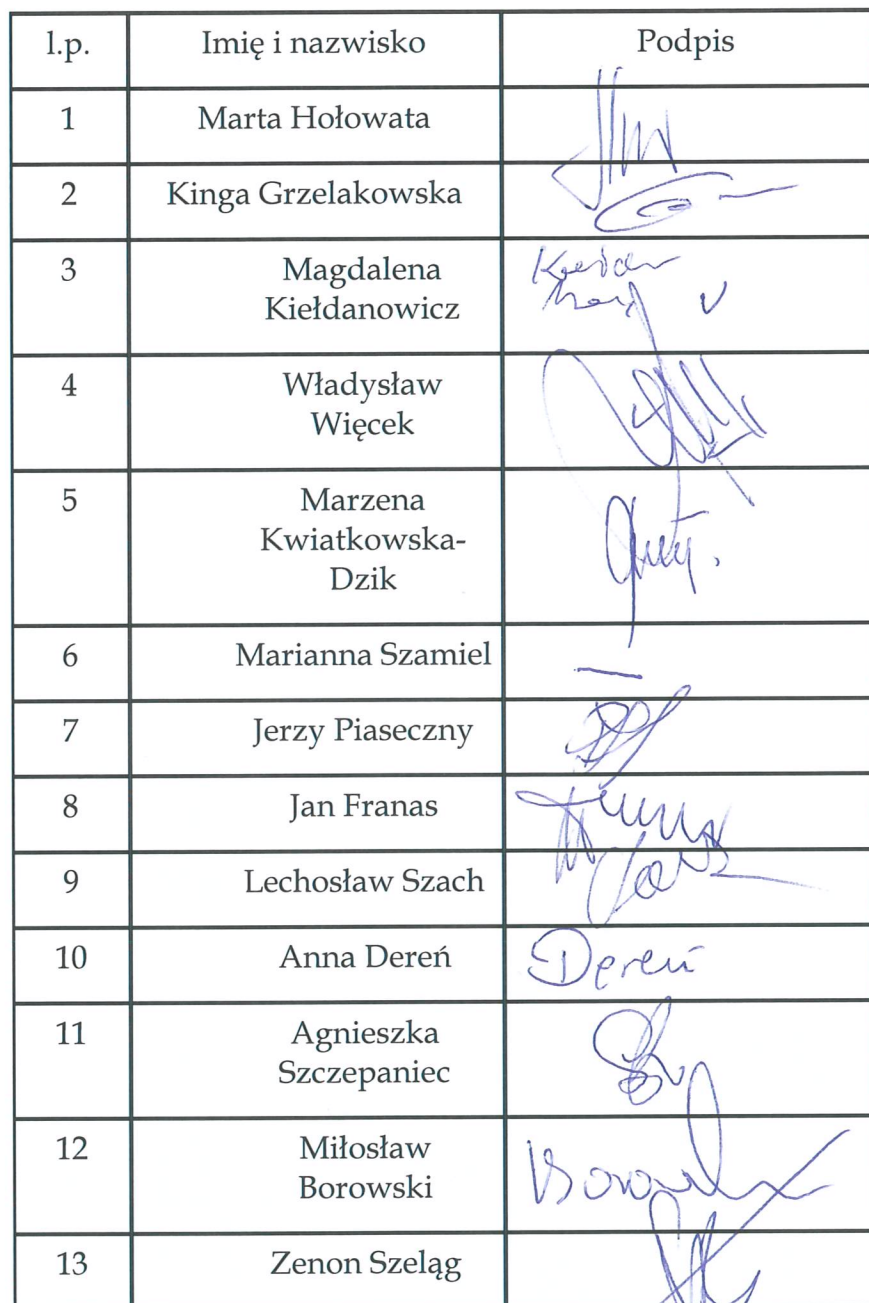 l.p. Imię i nazwisko Podpis
1 Marta Hołowata
2 Kinga Grzelakowska
3 Magdalena
Kiełdanowicz
4 Władysław
Więcek
5 Marzena
Kwiatkowska-
Dzik
6 Marianna Szamiel —
7 Jerzy Piaseczny
8 Jan Franas
9 Lechosław Szach
10 Anna Dereń Dereń
11 Agnieszka
Szczepaniec
12 Miłosław
Borowski
13 Zenon Szeląg